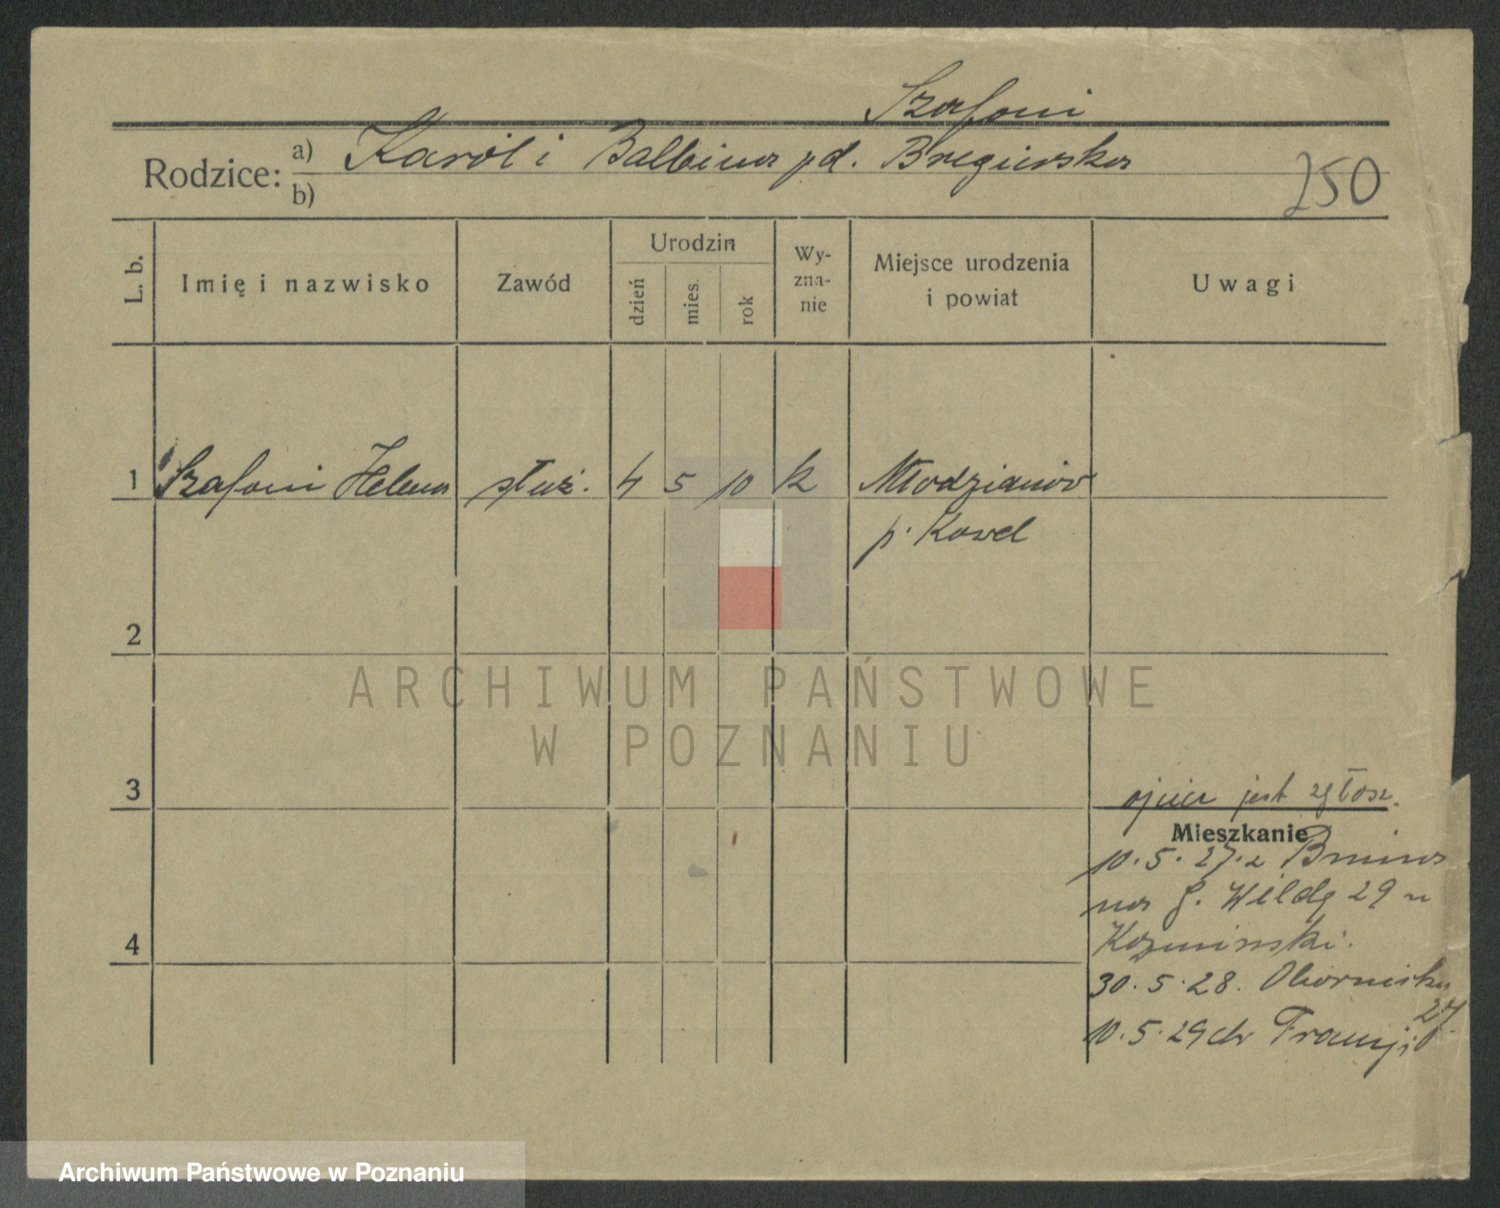 Szafoni
Rodzice: a) Karól i Balbina pd. Bregierska
b)
250
L. b.
Imię i nazwisko
Zawód
Urodzin
dzień
mies.
rok
Wy-
zna-
nie
Miejsce urodzenia
i powiat
Uwagi
1 Szafoni Helena służ. 4 5 10 k Młodzianów
p. Kowel
2
ARCHIWUM PAŃSTWOWE
W POZNANIU
3
ojciec jest zgłosz.
Mieszkanie
10.5.27. z Bnina
na G. Wildę 29 u
Kozminski.
30.5.28. Obornicka
27.
10.5.29 do Francji
4
Archiwum Państwowe w Poznaniu